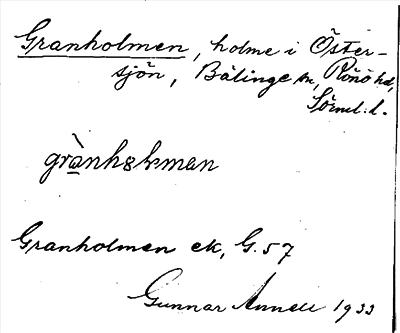 Granholmen, holme i Öster-
sjön, Bälinge sn, Rönö hd,
Sörml. l.
grànhɷlman
Granholmen ek, G.57
Gunnar Annell 1933